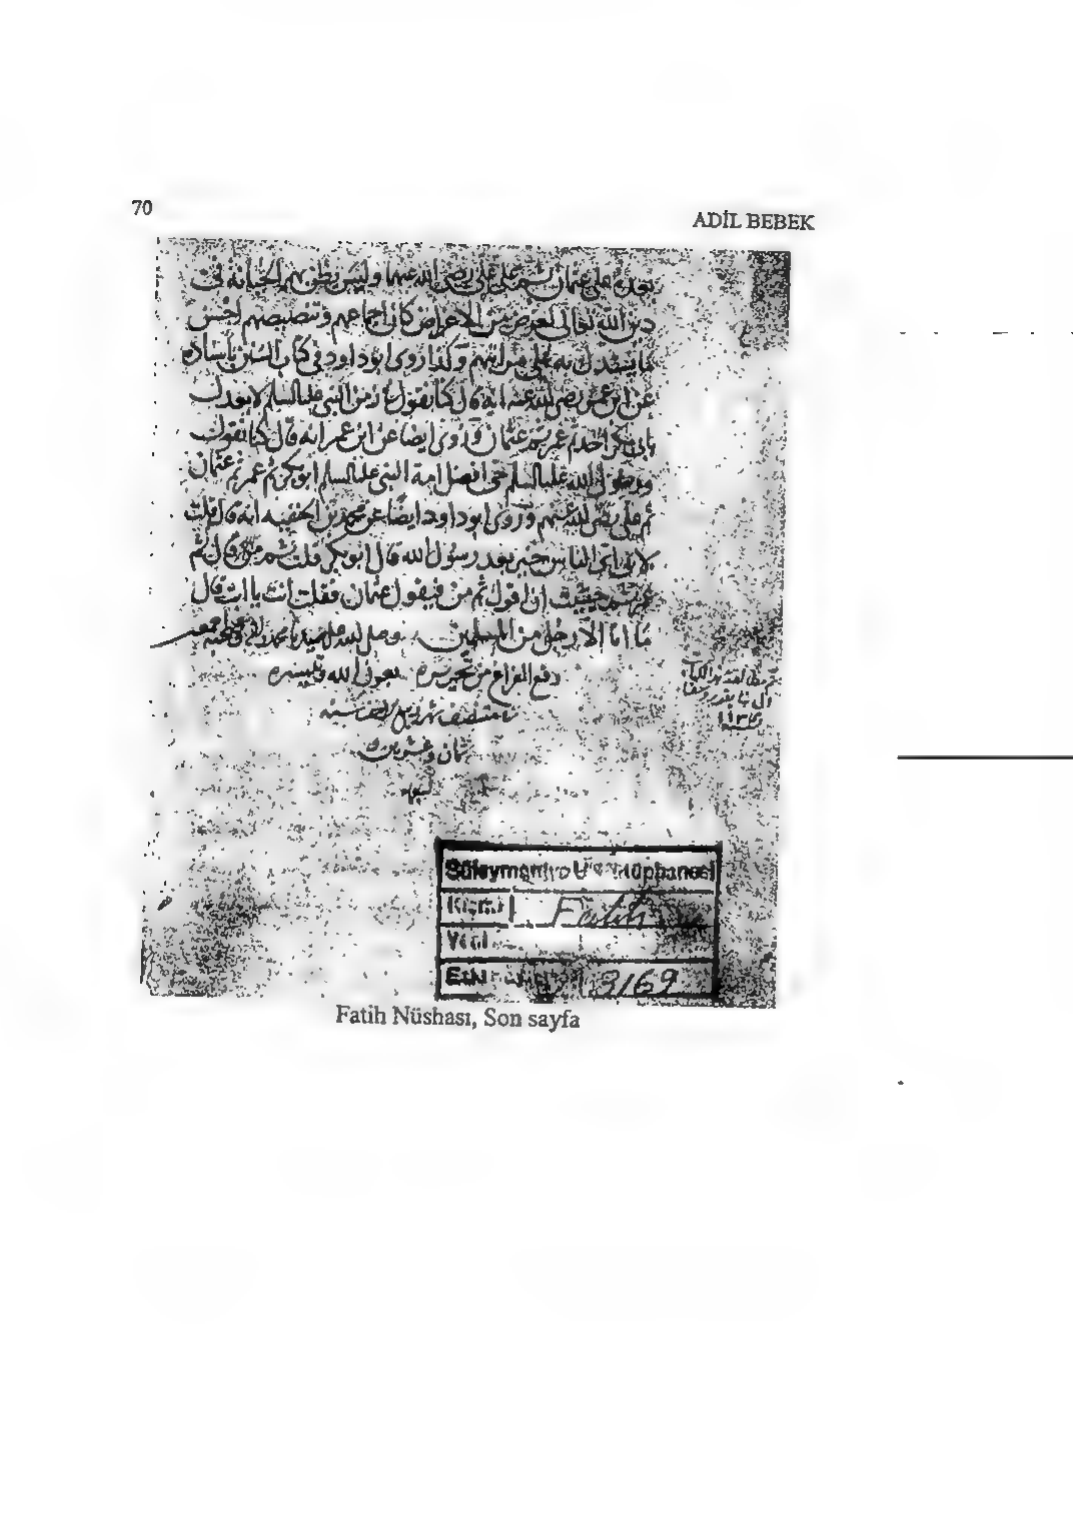 70
ADİL BEBEK
بعده على عثمان ثم على على رضى الله عنهما وليس يظن بهم الخيانة فى
دين الله تعالى لغرض من الاعراض كان اجماعهم وتنصيصهم احسن
ما يستدل به على مراتبهم وكذا روى ابو داود فى كتاب السنن باسناده
عن ابن عمر رضى الله عنه انه قال كنا نقول فى زمن النبى عليه السلم لا نعدل
بابى بكر احدا ثم عمر ثم عثمان وروى ايضا عن ابن عمر انه قال كنا نقول
ورسول الله عليه السلم حى افضل امة النبى عليه السلم ابو بكر ثم عمر ثم عثمان
ثم على رضى الله عنهم وروى ابو داود ايضا عن محمد بن الحنفيه انه قال قلت
لابى اى الناس خير بعد رسول الله قال ابو بكر قلت ثم من قال ثم
عمر ثم خشيت ان اقول ثم من فيقول عثمان فقلت انت يا ابت قال
ما انا الا رجل من المسلمين وصلى الله على سيدنا محمد
وقع الفراغ من تحريره بعون الله وتيسيره
ثمان وعشرين
Süleymaniye U Kütüphanesi
Kısmı Fatih
Yeni
Eski 3169
Fatih Nüshası, Son sayfa